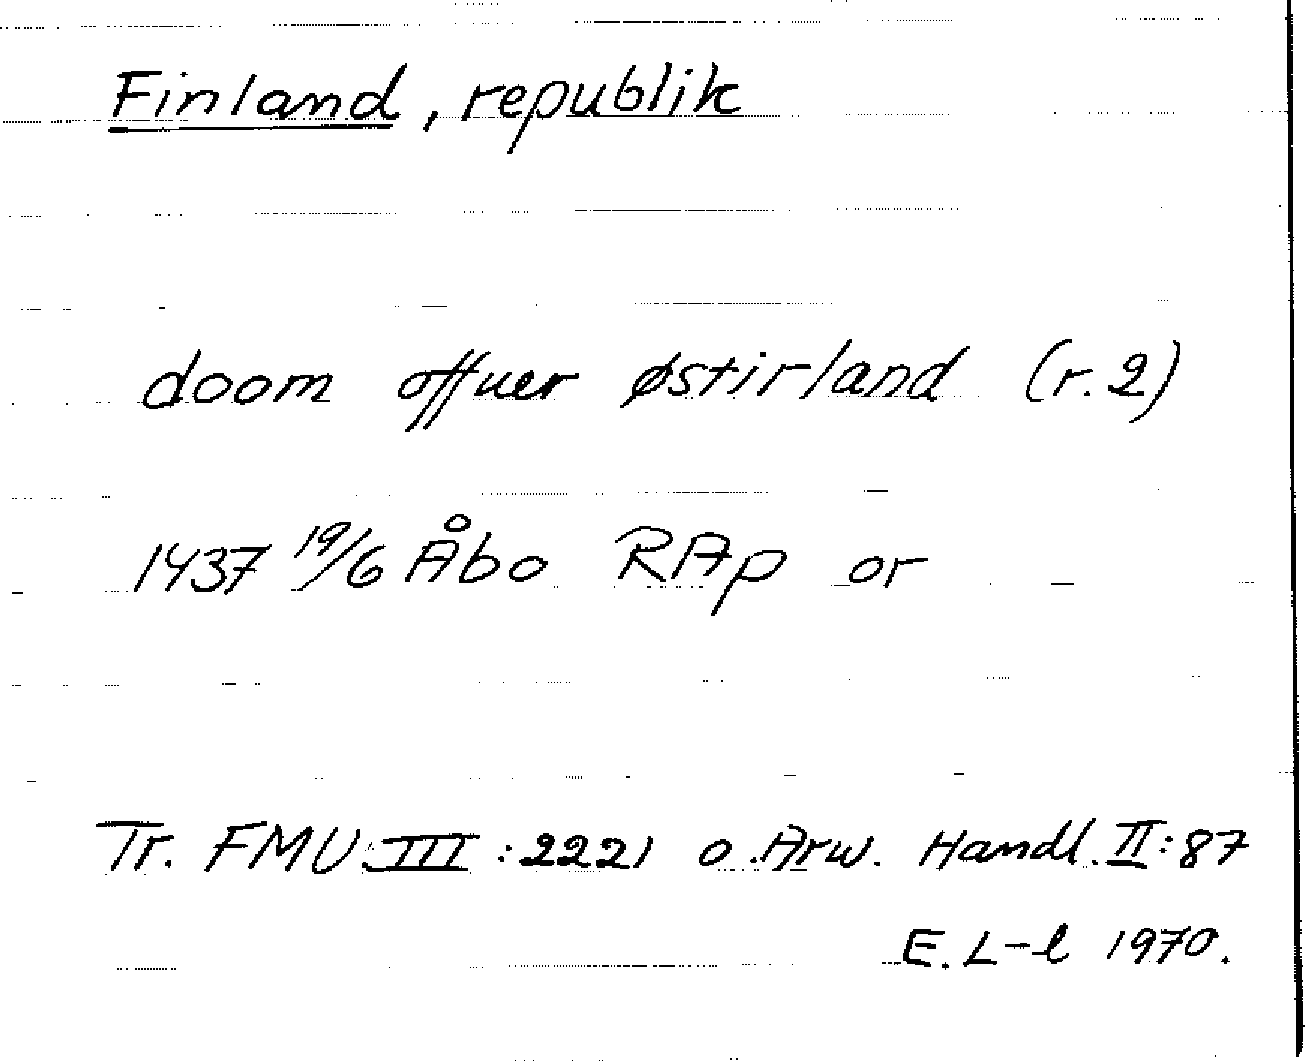 Finland, republik
doom offuer østirland (r. 2)
1437 19/6 Åbo RAp or
Tr. FMU III : 2221 o. Arw. Handl. II: 87
E. L-l 1970.